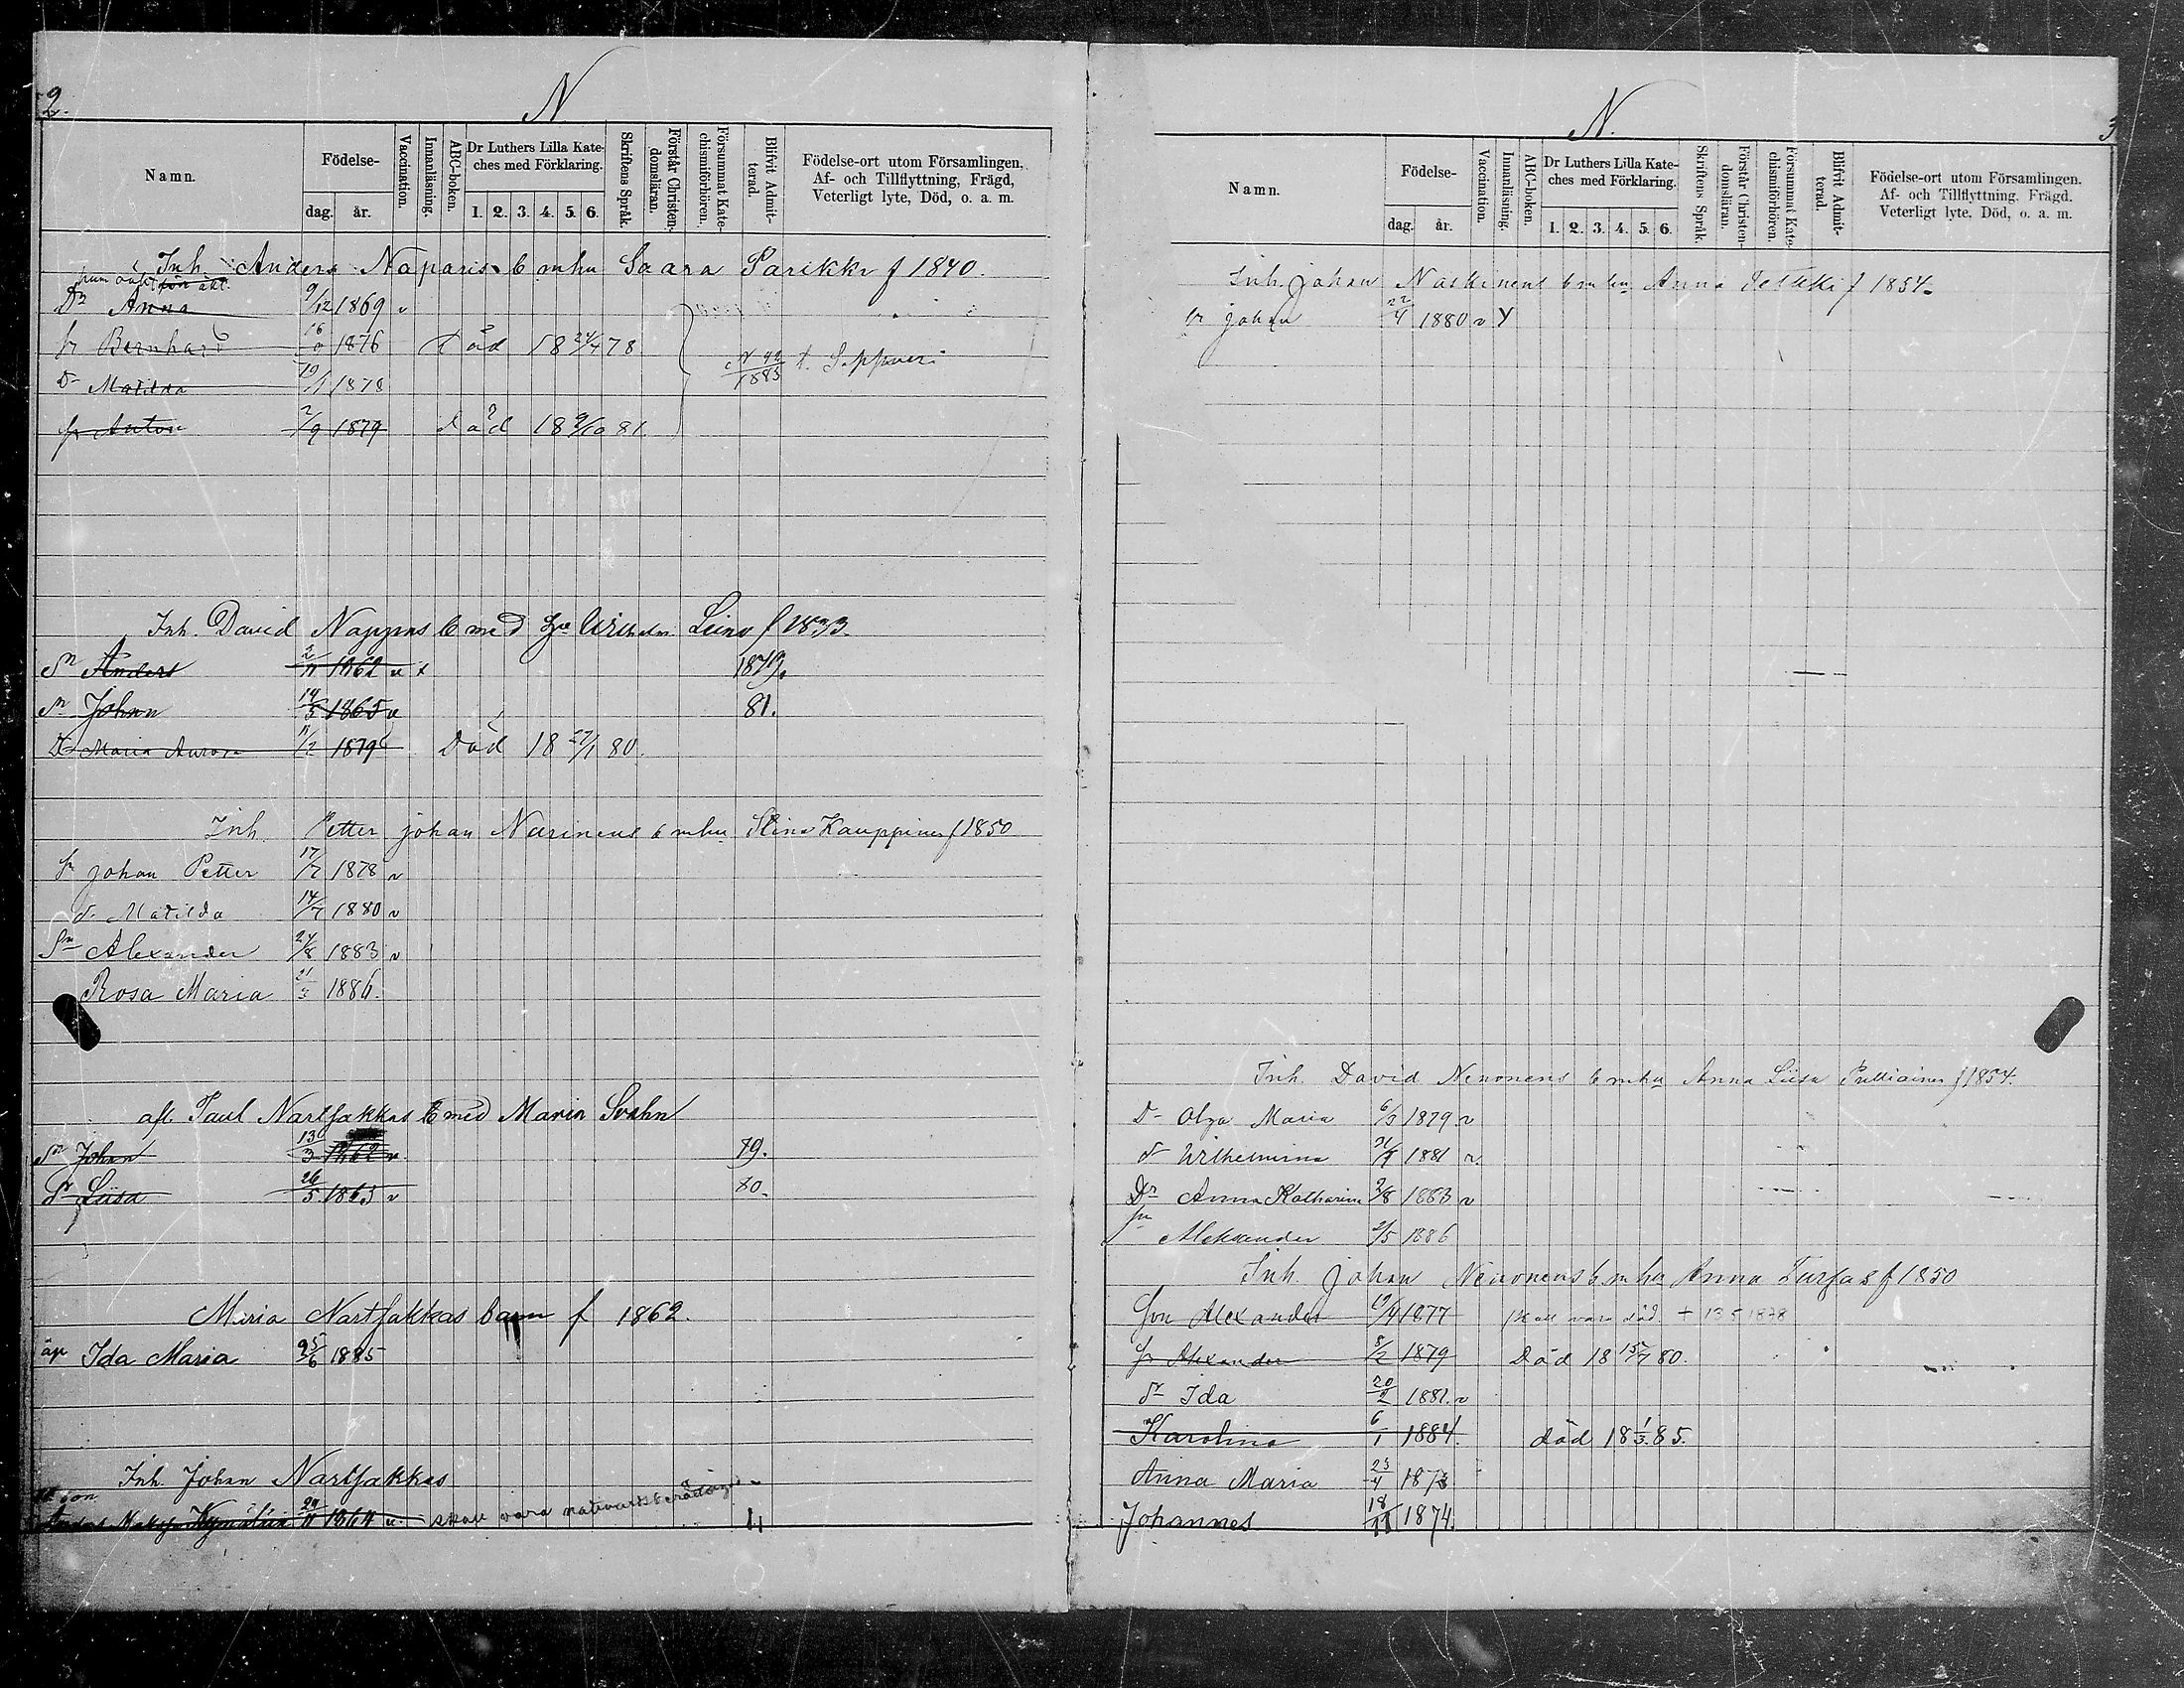 2.
N
Namn.
Födelse-
dag. år.
Vaccination.
Innanläsning.
ABC-boken.
Dr Luthers Lilla Kate-
ches med Förklaring.
1. 2. 3. 4. 5. 6.
Skriftens Språk.
Förstår Christen-
domsläran.
Försummat Kate-
chismiförhören.
Blifvit Admit-
terad.
Födelse-ort utom Församlingen,
Af- och Tillflyttning, Frägd,
Veterligt lyte, Död, o. a. m.
Inh Anders Naparis b mhu Saara Parikki f 1840.
Dr Anna 9/12 1869 v
sr Bernhard 1876 Död 18 24/4 78
Dr Matilda 19/1 1878 N 42/1883 t. Seppner
sr Anton 2/9 1879 död 18 9/10 81.
Inh. David Nappus b med Wilhelm. Leino f 1833.
Sn Anders 2/11 1862 v x 1879.
Sn Johan 14/5 1865 v 81.
Dr Maria Aurora 11/2 1879 Död 18 27/1 80.
Inh. Petter johan Narinens b mhu Stina Kauppinen f 1850
sr johan Petter 17/7 1878 v
dr Matilda 14/7 1880 v
Sn Alexander 24/8 1883 v
Rosa Maria 21/3 1886.
afl. Paul Nartjakkas b med Maria Svahn
Sn Johan 13/3 1862 v 79.
Dr Liisa 26/5 1863 v 80.
Maria Nartjakkas barn f 1862.
äp Ida Maria 25/6 1885
Inh. Johan Nartjakkas
son
29/11 1864 v. skall vara
N.
3
Namn.
Födelse-
dag. år.
Vaccination.
Innanläsning.
ABC-boken.
Dr Luthers Lilla Kate-
ches med Förklaring.
1. 2. 3. 4. 5. 6.
Skriftens Språk.
Förstår Christen-
domsläran.
Försummat Kate-
chismiförhören.
Blifvit Admit-
terad.
Födelse-ort utom Församlingen.
Af- och Tillflyttning, Frägd.
Veterligt lyte, Död, o. a. m.
Inh. johan Naskinens b mhu Anna f 1854.
sr johan 22/4 1880 v Y
Inh. David Nenonens b mhu Anna Liisa Pulliainen f 1854.
Dr Olga Maria 6/3 1879 v
dr Wilhelmina 1881 v.
Dr Anna Katharina 2/8 1883 v
sn Aleksander 2/5 1886
Inh. johan Nenonens b mhu Anna Turjas f 1850
Son Alexander 19/4 1877 skall vara död + 13 5 1878
sr Alexander 8/2 1879 Död 18 15/7 80.
dr Ida 20/2 1881. v
Karolina 6/1 1884. död 18 1/3. 85.
Anna Maria 25/4 1873
Johannes 18/11 1874.